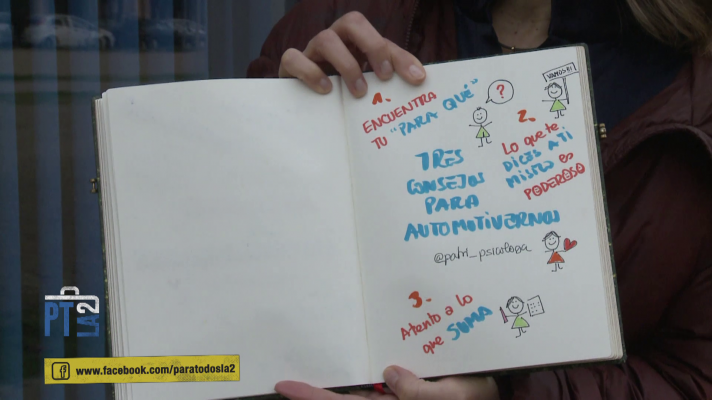 1.
ENCUENTRA
TU "PARA QUÉ"
?
VAMOS!!
2.
Lo que te
DICES A TI
MISMO es
PODEROSO
TRES
CONSEJOS
PARA
AUTOMOTIVERNOS
@patri_psicologa
3.
Atento a lo
que SUMA
PT
LA2
www.facebook.com/paratodosla2